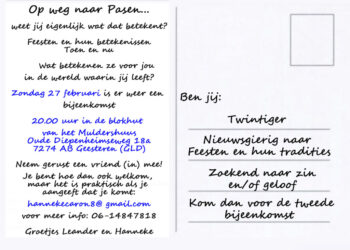 Op weg naar Pasen...
weet jij eigenlijk wat dat betekent?
Feesten en hun betekenissen
Toen en nu
Wat betekenen ze voor jou
in de wereld waarin jij leeft?
Zondag 27 februari is er weer een
bijeenkomst
20.00 uur in de blokhut
van het Muldershuus
Oude Diepenheimseweg 18a
7274 AB Geesteren (GLD)
Neem gerust een vriend (in) mee!
Je bent hoe dan ook welkom,
maar het is praktisch als je
aangeeft dat je komt:
hannekecaron8@gmail.com
voor meer info: 06-14847818
Groetjes Leander en Hanneke
Ben jij:
Twintiger
Nieuwsgierig naar
Feesten en hun tradities
Zoekend naar zin
en/of geloof
Kom dan voor de tweede
bijeenkomst